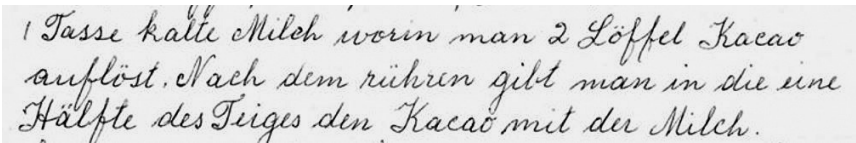 1 Tasse kalte Milch worin man 2 Löffel Kacao
auflöst. Nach dem rühren gibt man in die eine
Hälfte des Teiges den Kacao mit der Milch.